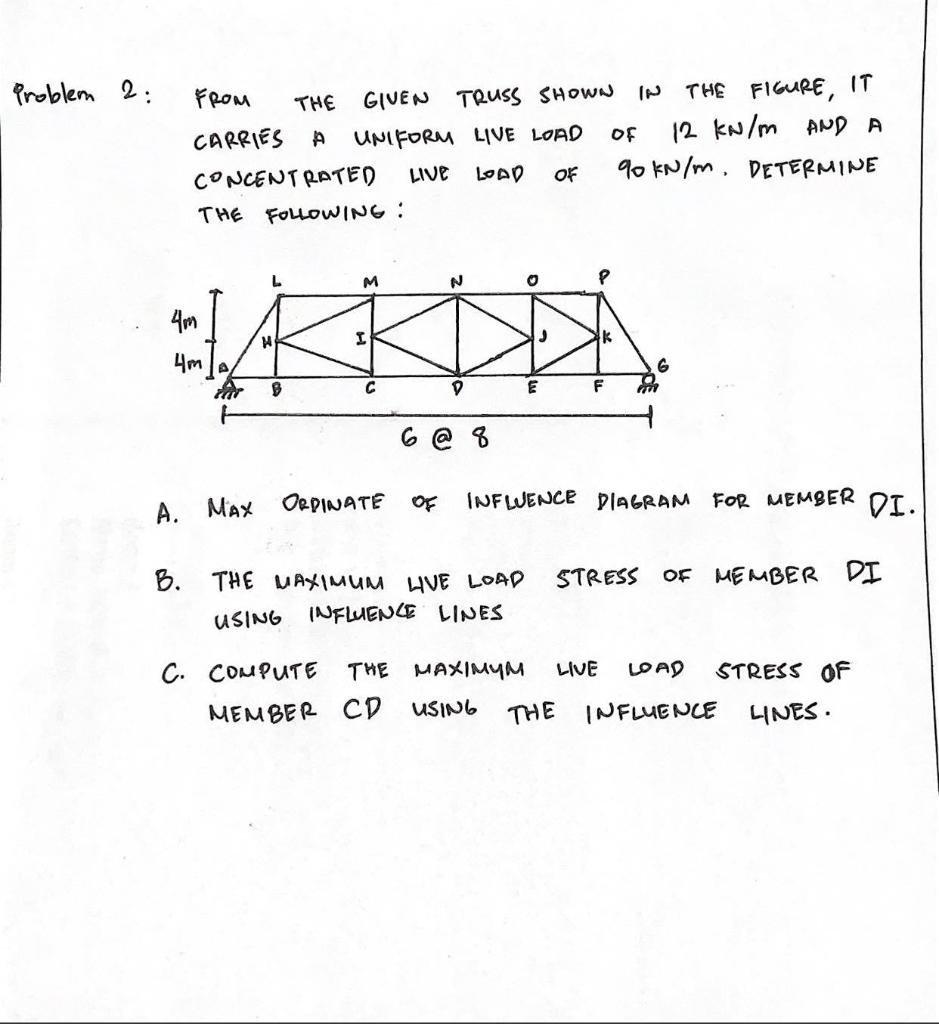 Problem 2: FROM THE GIVEN TRUSS SHOWN IN THE FIGURE, IT
CARRIES A UNIFORM LIVE LOAD OF 12 KN/m AND A
CONCENTRATED LIVE LOAD OF 90 KN/m. DETERMINE
THE FOLLOWING:
L M N O P
4m
H I J K
4m
A G
B C D E F
6 @ 8
A. MAX ORDINATE OF INFLUENCE DIAGRAM FOR MEMBER DI.
B. THE MAXIMUM LIVE LOAD STRESS OF MEMBER DI
USING INFLUENCE LINES
C. COMPUTE THE MAXIMUM LIVE LOAD STRESS OF
MEMBER CD USING THE INFLUENCE LINES.